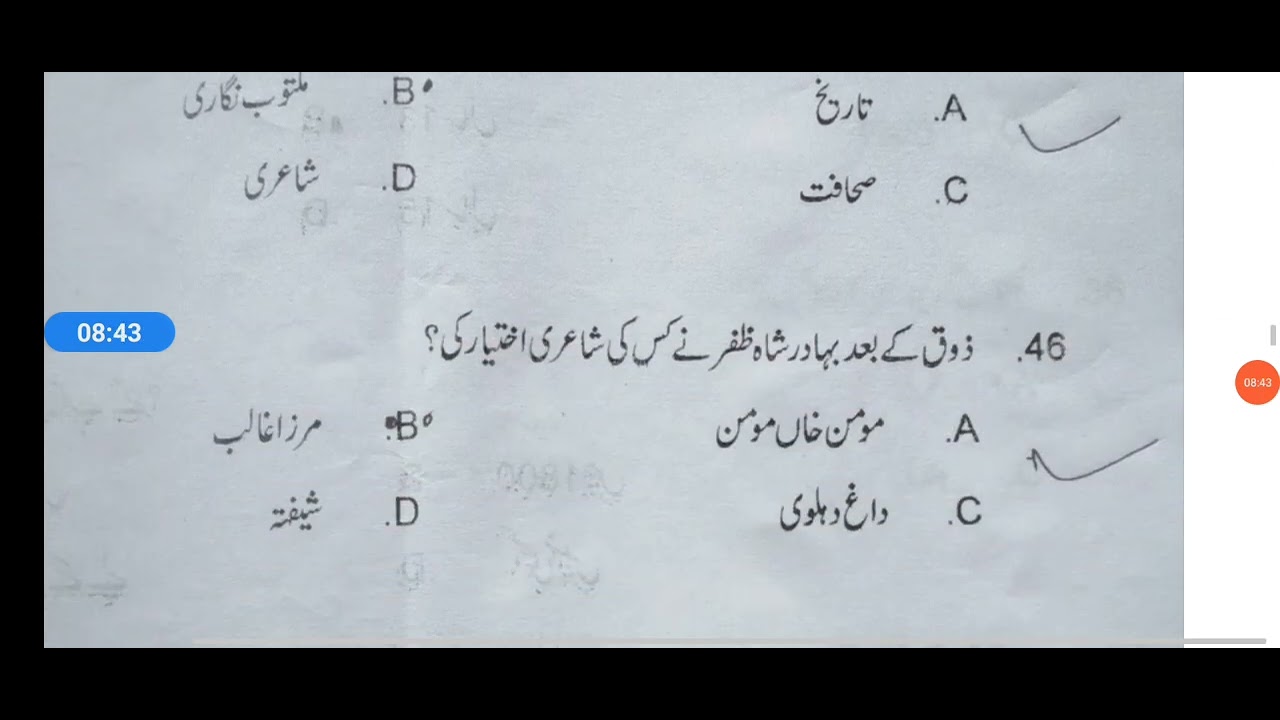 A. تاریخ B. مکتوب نگاری
C. صحافت D. شاعری
46. ذوق کے بعد بہادر شاہ ظفر نے کس کی شاعری اختیار کی؟
08:43
08:43
A. مومن خاں مومن B. مرزا غالب
C. داغ دہلوی D. شیفتہ